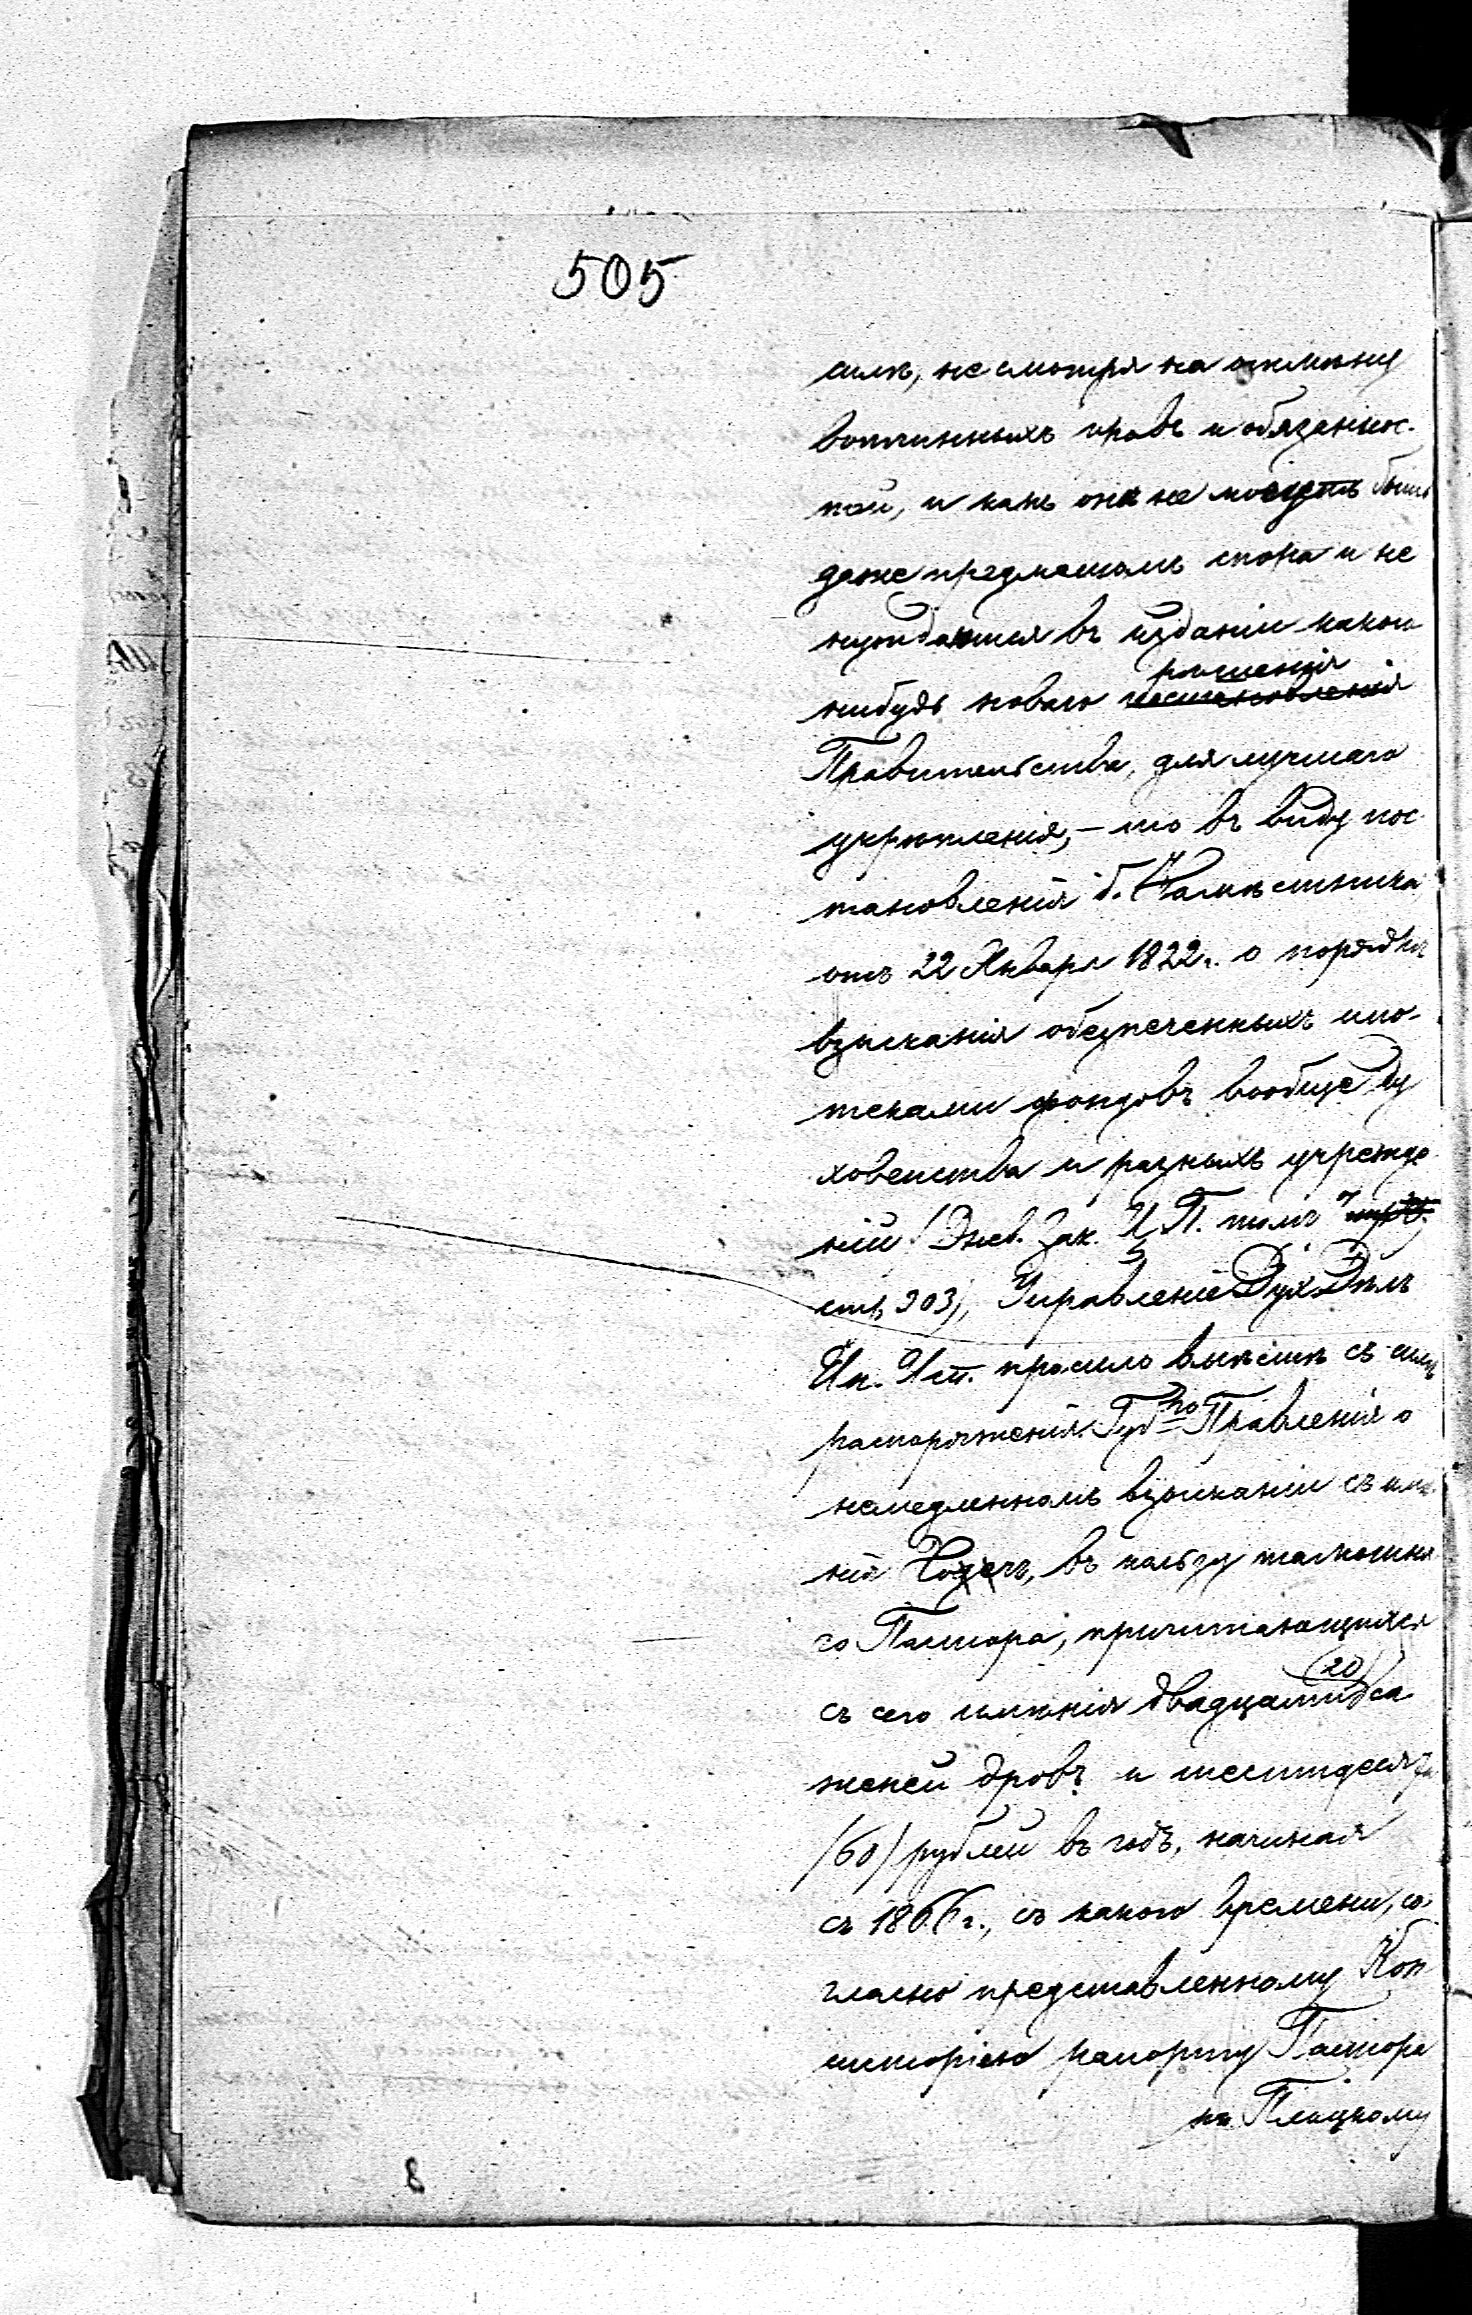 505
силѣ, не смотря на отмѣну
вотчинныхъ правъ и обязаннос-
тей, и какъ онѣ не могутъ быть
даже предметомъ спора и не
нуждаются въ изданіи какого
нибудь новаго постановленія
рѣшенія
Правительства, для лучшаго
укрѣпленія, – то въ виду пос
тановленія б. Намѣстника
отъ 22 Января 1822 г. о порядкѣ
взысканія обезпеченныхъ ипо-
теками фондовъ вообще ду
ховенства и разныхъ учрежде
ній (Днев. Зак. Ц. П. томъ 7
стр 303), Управленіе Дух. Дѣлъ
Ин. Исп. просило вмѣстѣ съ симъ
распоряженія Губ-го Правленія о
немедленномъ взысканіи съ имѣ
нія въ пользу тамошня
го Пастора, причитающихся
съ сего имѣнія двадцати (20) са
женей дровъ и шестидесяти
(60) рублей въ годъ, начиная
съ 1866 г., съ какого времени, со-
гласно представленному Кон
систоріею рапорту Пастора
къ Плоцкому
8